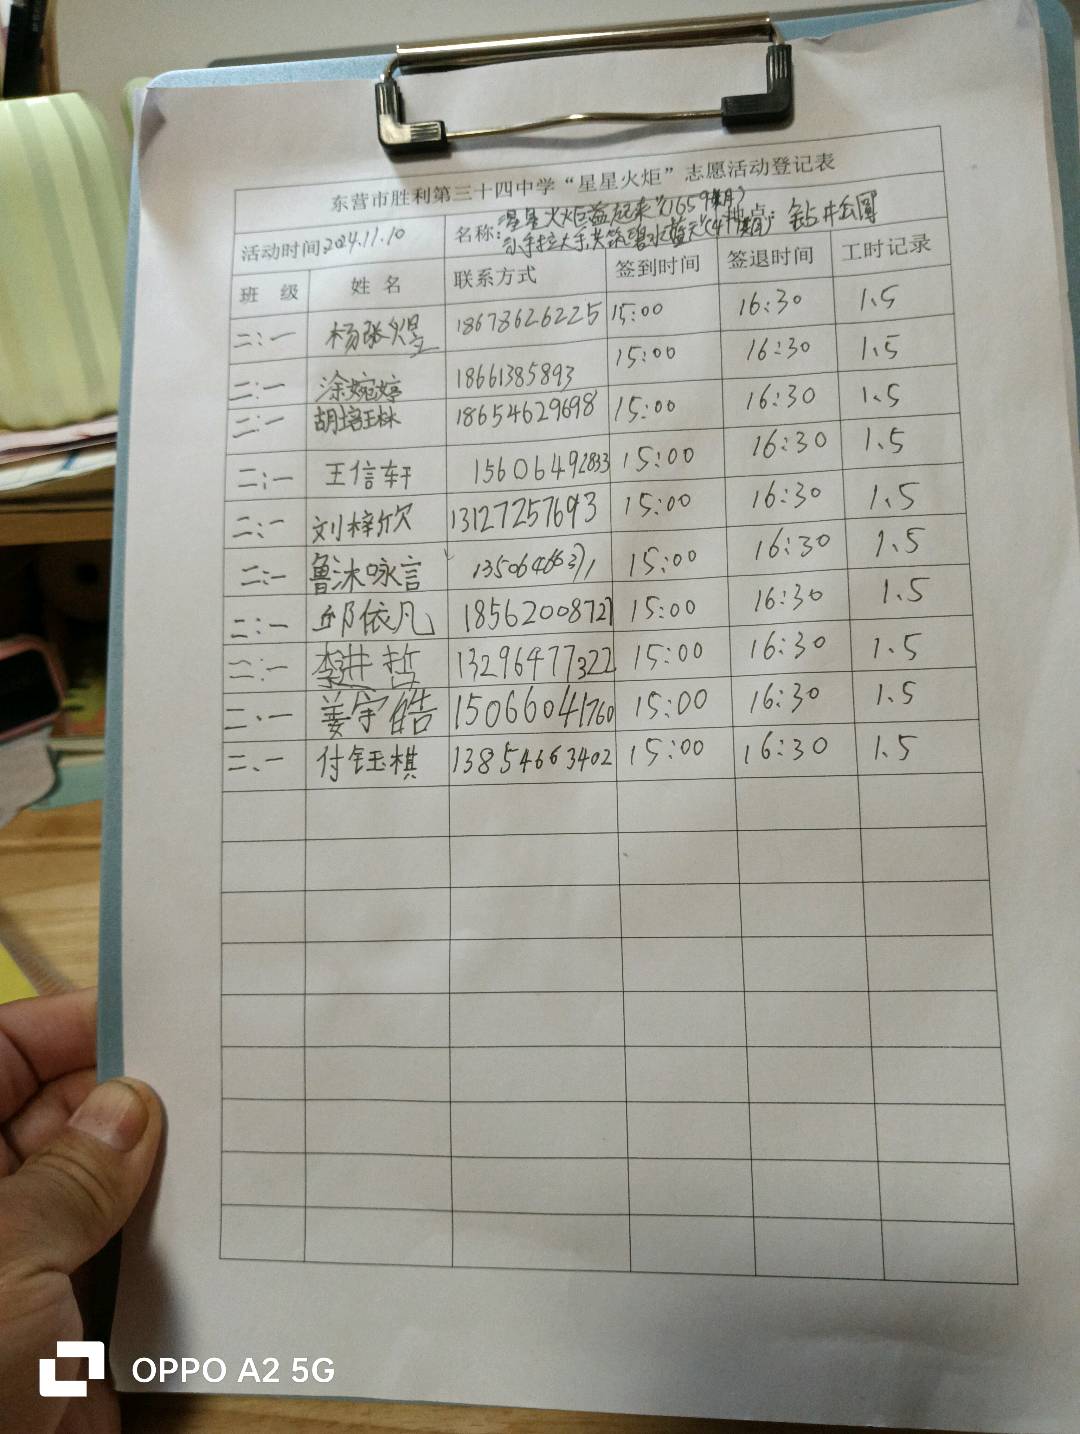 东营市胜利第三十四中学“星星火炬”志愿活动登记表
活动时间2024.11.10 名称: 地点: 钻井公园
星星火炬益起来
小手拉大手,共筑碧水蓝天
班 级 姓 名 联系方式 签到时间 签退时间 工时记录
二:一 杨张煜 18678626225 15:00 16:30 1.5
二:一 涂婉婷 18661385893 15:00 16:30 1.5
二:一 胡培钰林 18654629698 15:00 16:30 1.5
二:一 王信轩 15606492833 15:00 16:30 1.5
二:一 刘梓欣 13127257693 15:00 16:30 1.5
二:一 鲁沐咏言 15:00 16:30 1.5
二:一 邱依凡 18562008727 15:00 16:30 1.5
二:一 哲 13296477322 15:00 16:30 1.5
二、一 姜宇皓 15066041760 15:00 16:30 1.5
二、一 付钰棋 13854663402 15:00 16:30 1.5
OPPO A2 5G